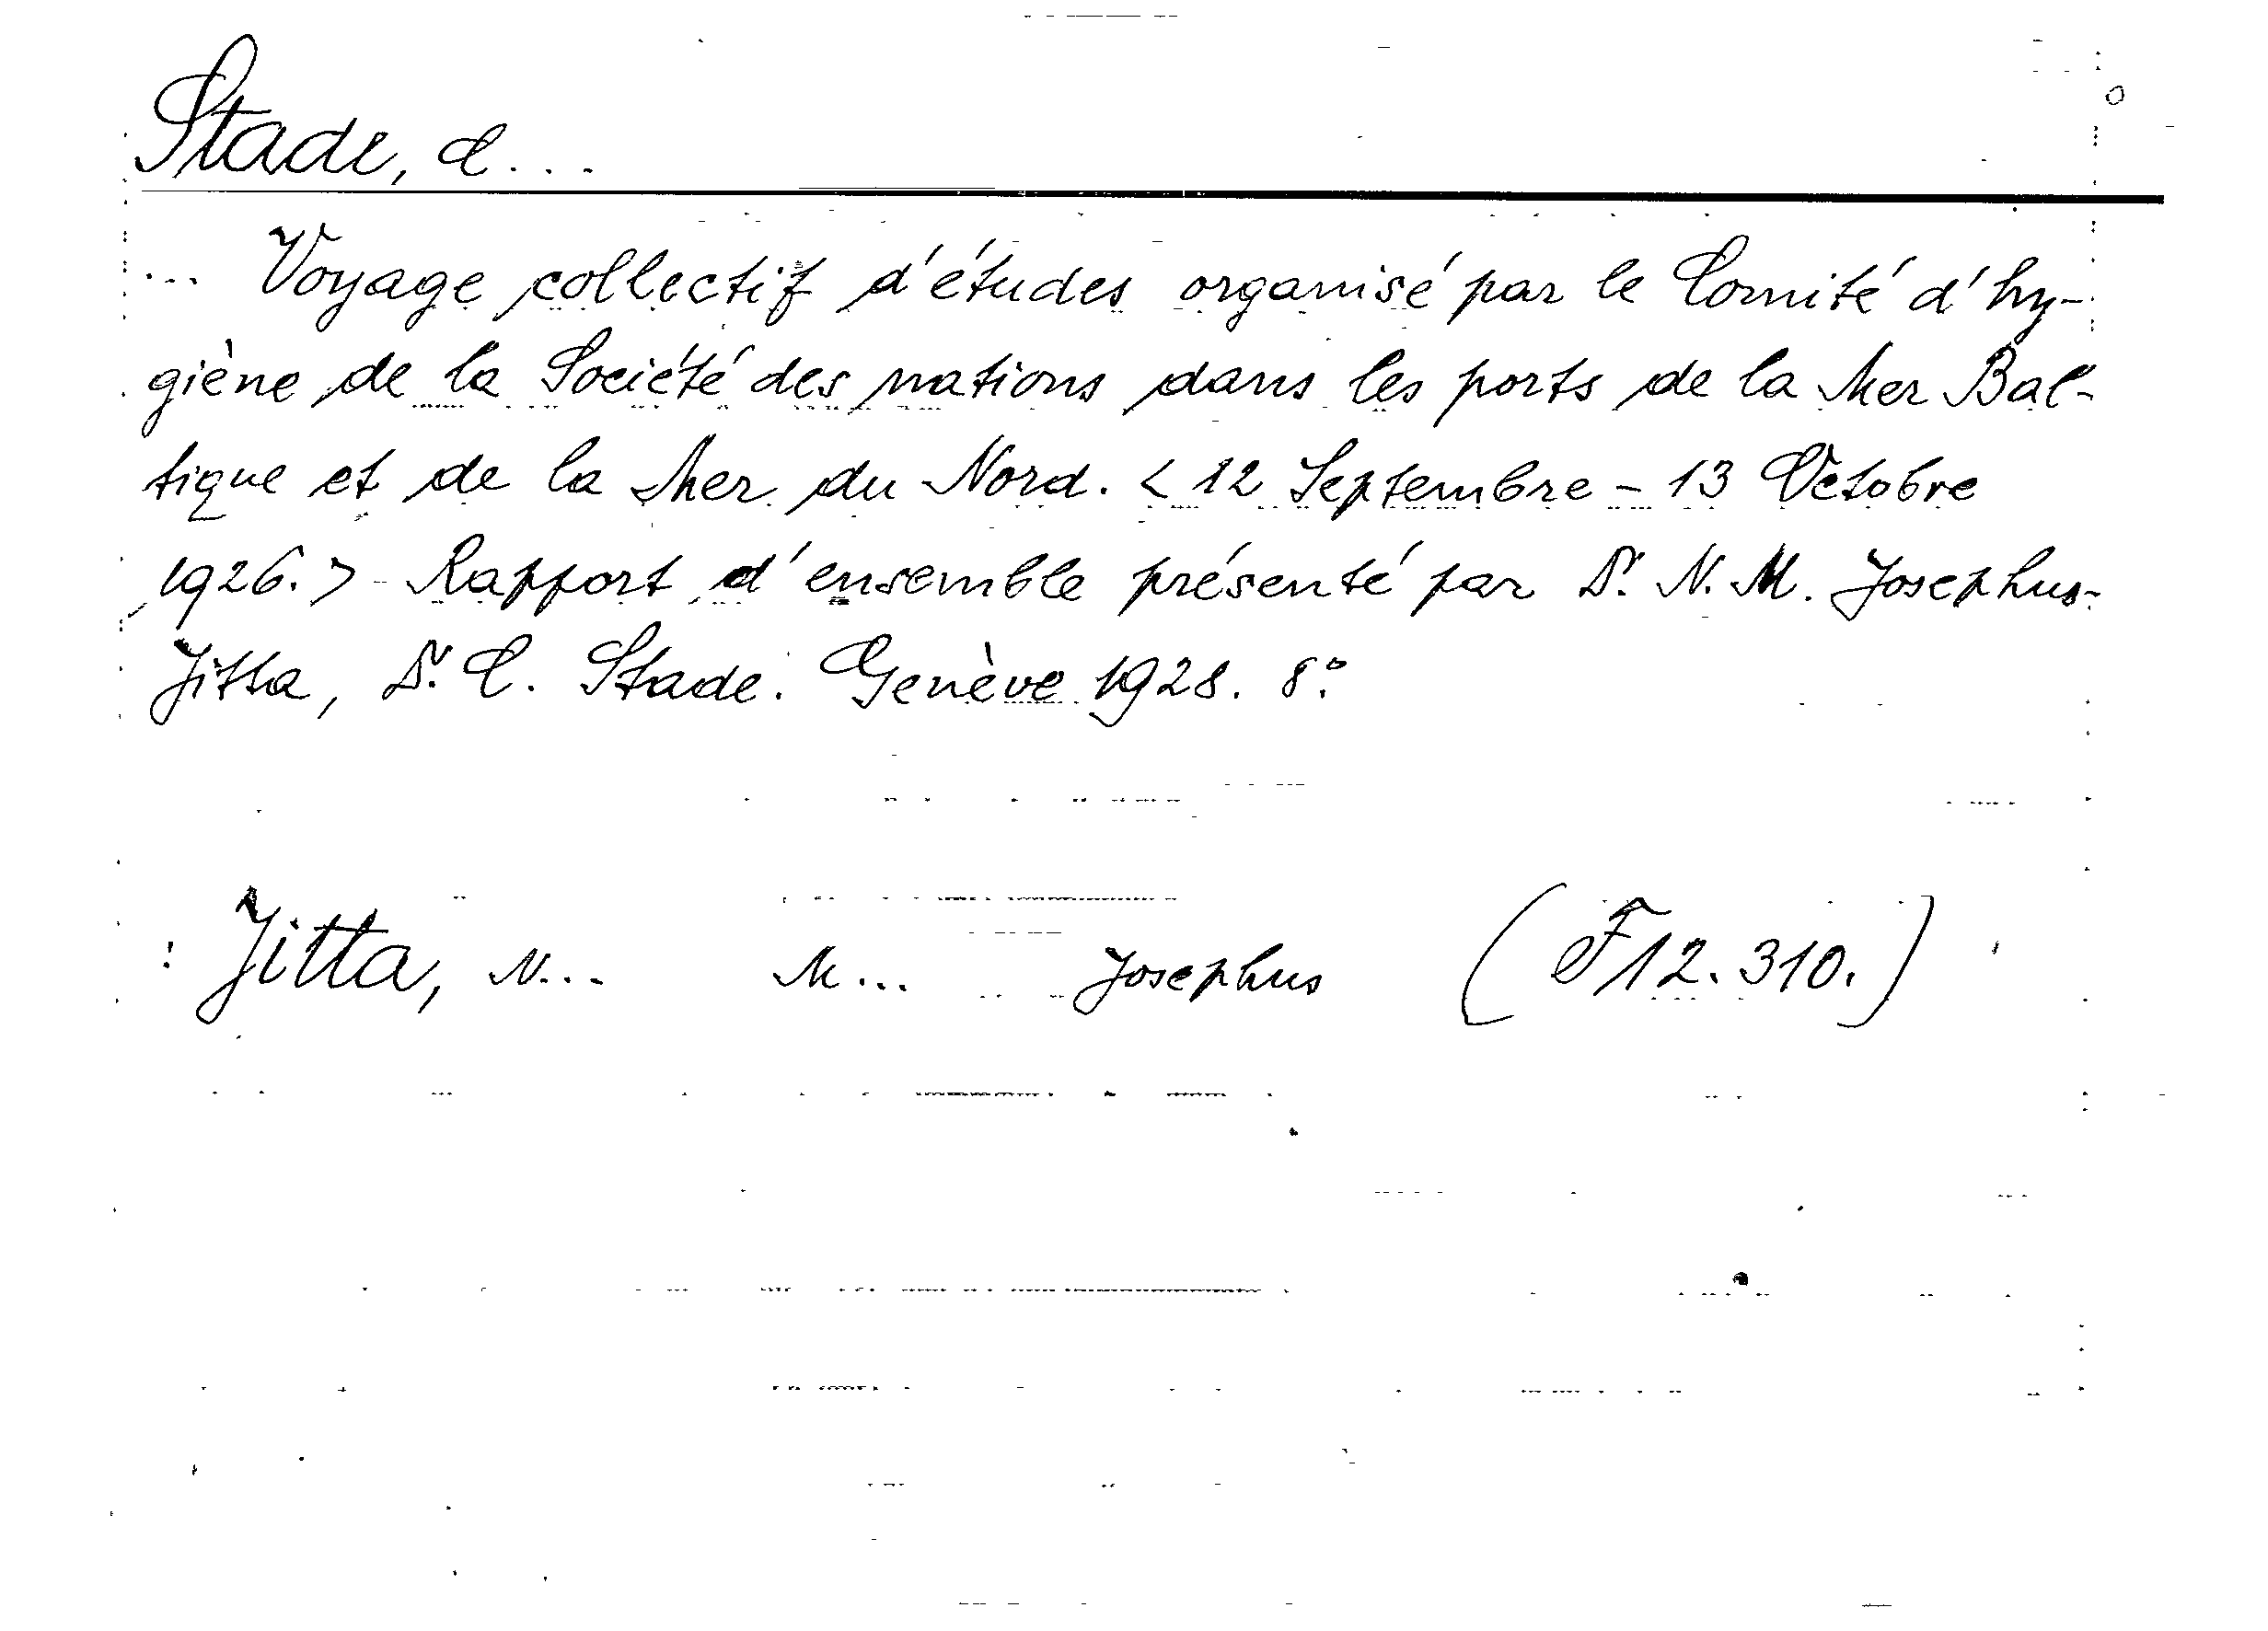 Stade, C...
... Voyage collectif d'études organisé par le Comité d'hy-
giène de la Société des nations dans les ports de la Mer Bal-
tique et de la Mer du Nord. < 12 Septembre - 13 Octobre
1926. > - Rapport d'ensemble présenté par Dr. N. M. Josephus-
Jitta, Dr. C. Stade. Genève 1928. 8°.
: Jitta, N... M... Josephus (F12.310.)